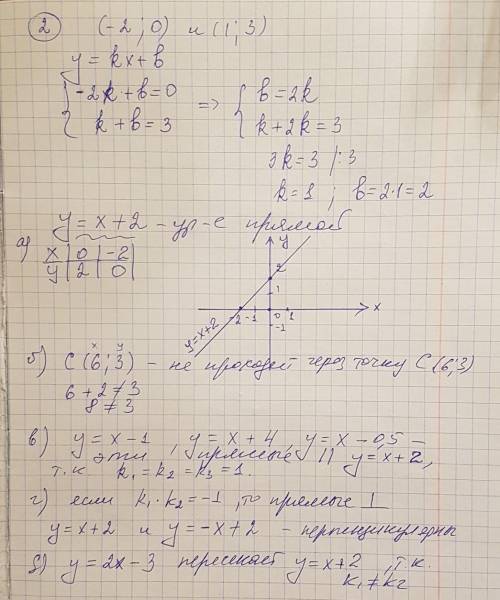 2 (-2; 0) и (1; 3)
y = kx + b
{ -2k + b = 0 => { b = 2k
k + b = 3 k + 2k = 3
3k = 3 |:3
k = 1 ; b = 2·1 = 2
y = x + 2 - ур-е прямой
а) x | 0 | -2 |
y | 2 | 0 |
y
2
1
-2 -1 0 1 x
-1
y=x+2
x y
б) C (6; 3) - не проходит через точку C (6; 3)
6 + 2 ≠ 3
8 ≠ 3
в) y = x - 1 , y = x + 4, y = x - 0,5 -
эти прямые || y = x + 2,
т.к k₁ = k₂ = k₃ = 1.
г) если k₁ · k₂ = -1 , то прямые ⊥
y = x + 2 и y = -x + 2 - перпендикулярны
д) y = 2x - 3 пересекает y = x + 2 , т.к.
k₁ ≠ k₂